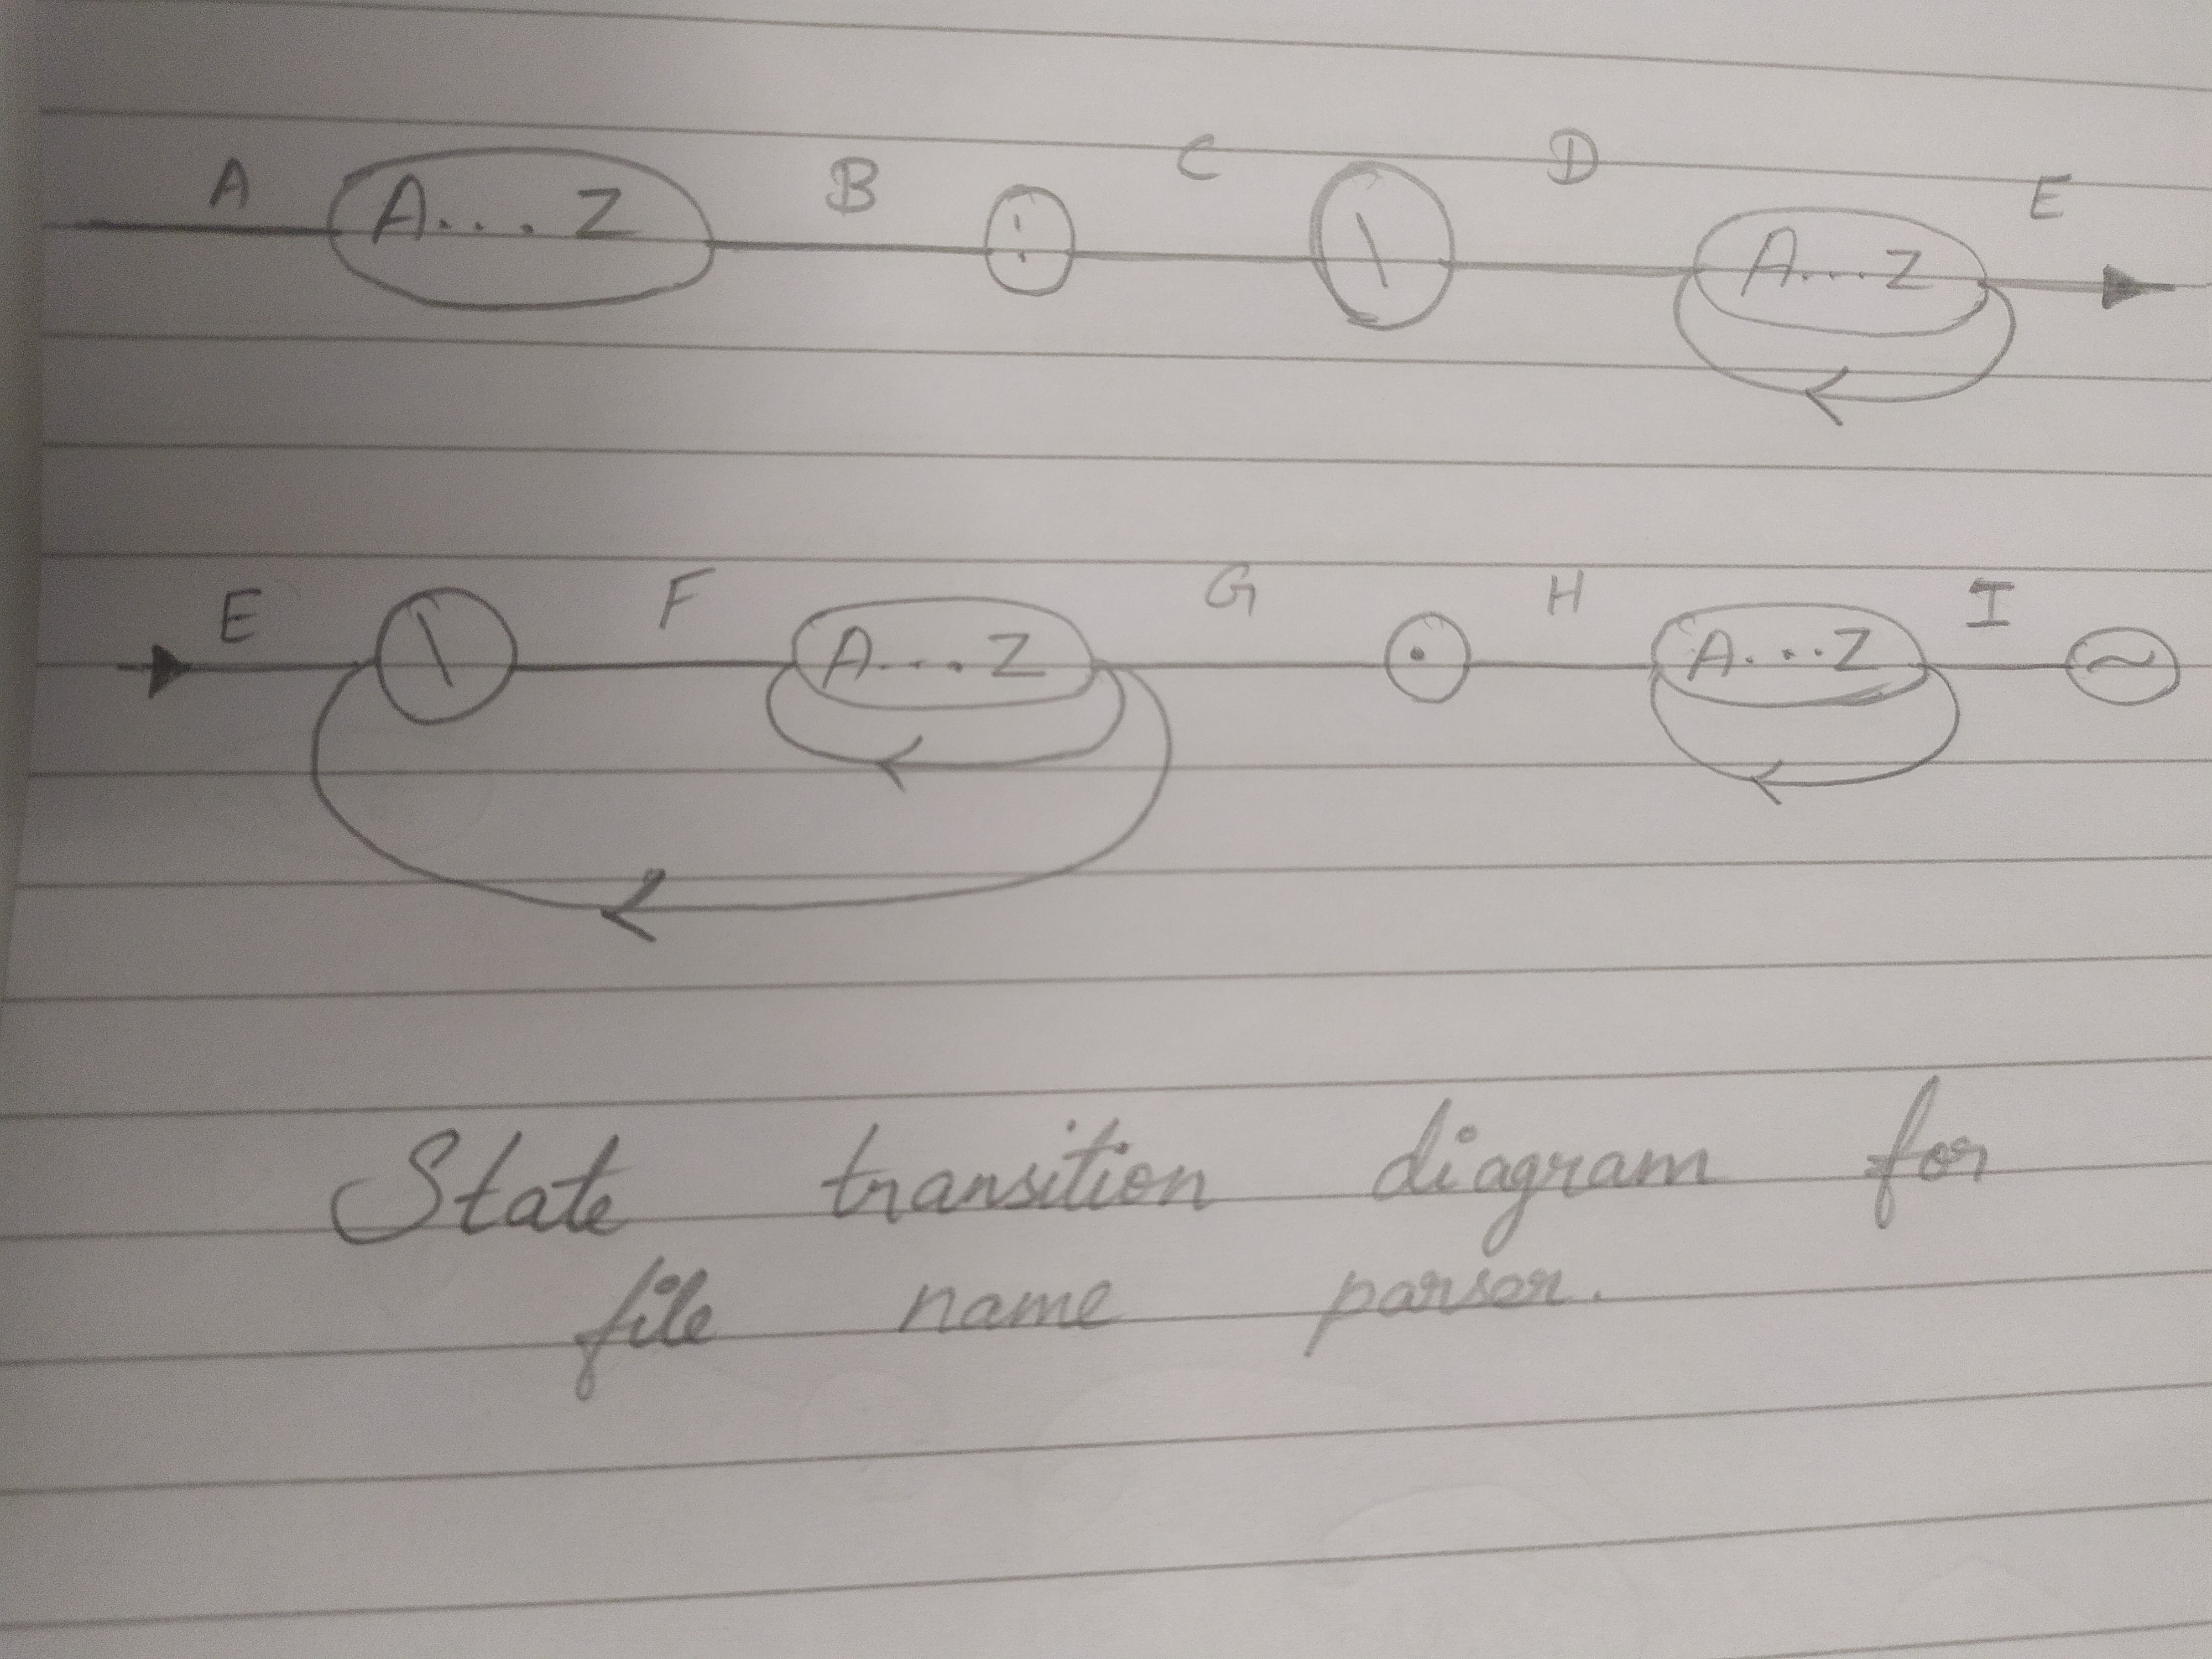 A A... Z B : C \ D A...Z E
E \ F A...Z G . H A...Z I ~
State transition diagram for
file name parser.